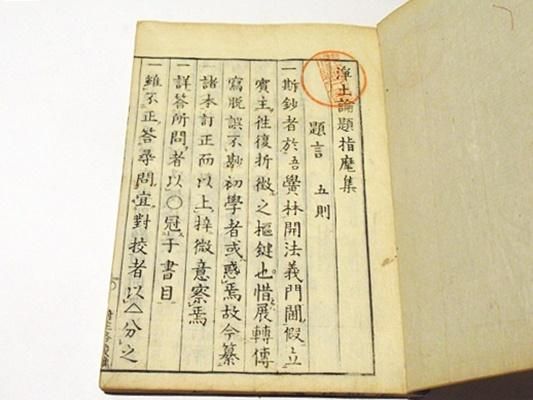 淨土論題指麾集
題言 五則
一斯鈔者於吾黌林開法義門闘假立
賓主徃復折徴之樞鍵也惜展轉傳
寫脱誤不尠初學者或惑焉故今纂
諸本訂正而以上梓微意察焉
一詳答所問者以〇冠于書目
一雖不正答尋問宜對挍者以△分之